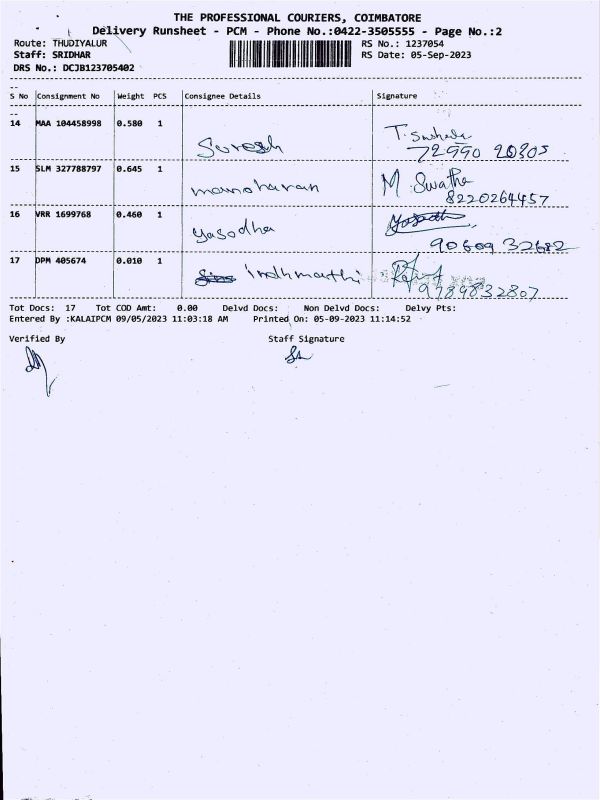 THE PROFESSIONAL COURIERS, COIMBATORE
Delivery Runsheet - PCM - Phone No.:0422-3505555 - Page No.:2
Route: THUDIYALUR RS No.: 1237054
Staff: SRIDHAR RS Date: 05-Sep-2023
DRS No.: DCJB123705402
S No Consignment No Weight PCS Consignee Details Signature
14 MAA 104458998 0.580 1
Suresh
72990 20305
15 SLM 327788797 0.645 1 M. Swatha
manoharan 8220264457
16 VRR 1699768 0.460 1
Yasodha
90609 32682
17 DPM 405674 0.010 1
9789832807
Tot Docs: 17 Tot COD Amt: 0.00 Delvd Docs: Non Delvd Docs: Delvy Pts:
Entered By :KALAIPCM 09/05/2023 11:03:18 AM Printed On: 05-09-2023 11:14:52
Verified By Staff Signature